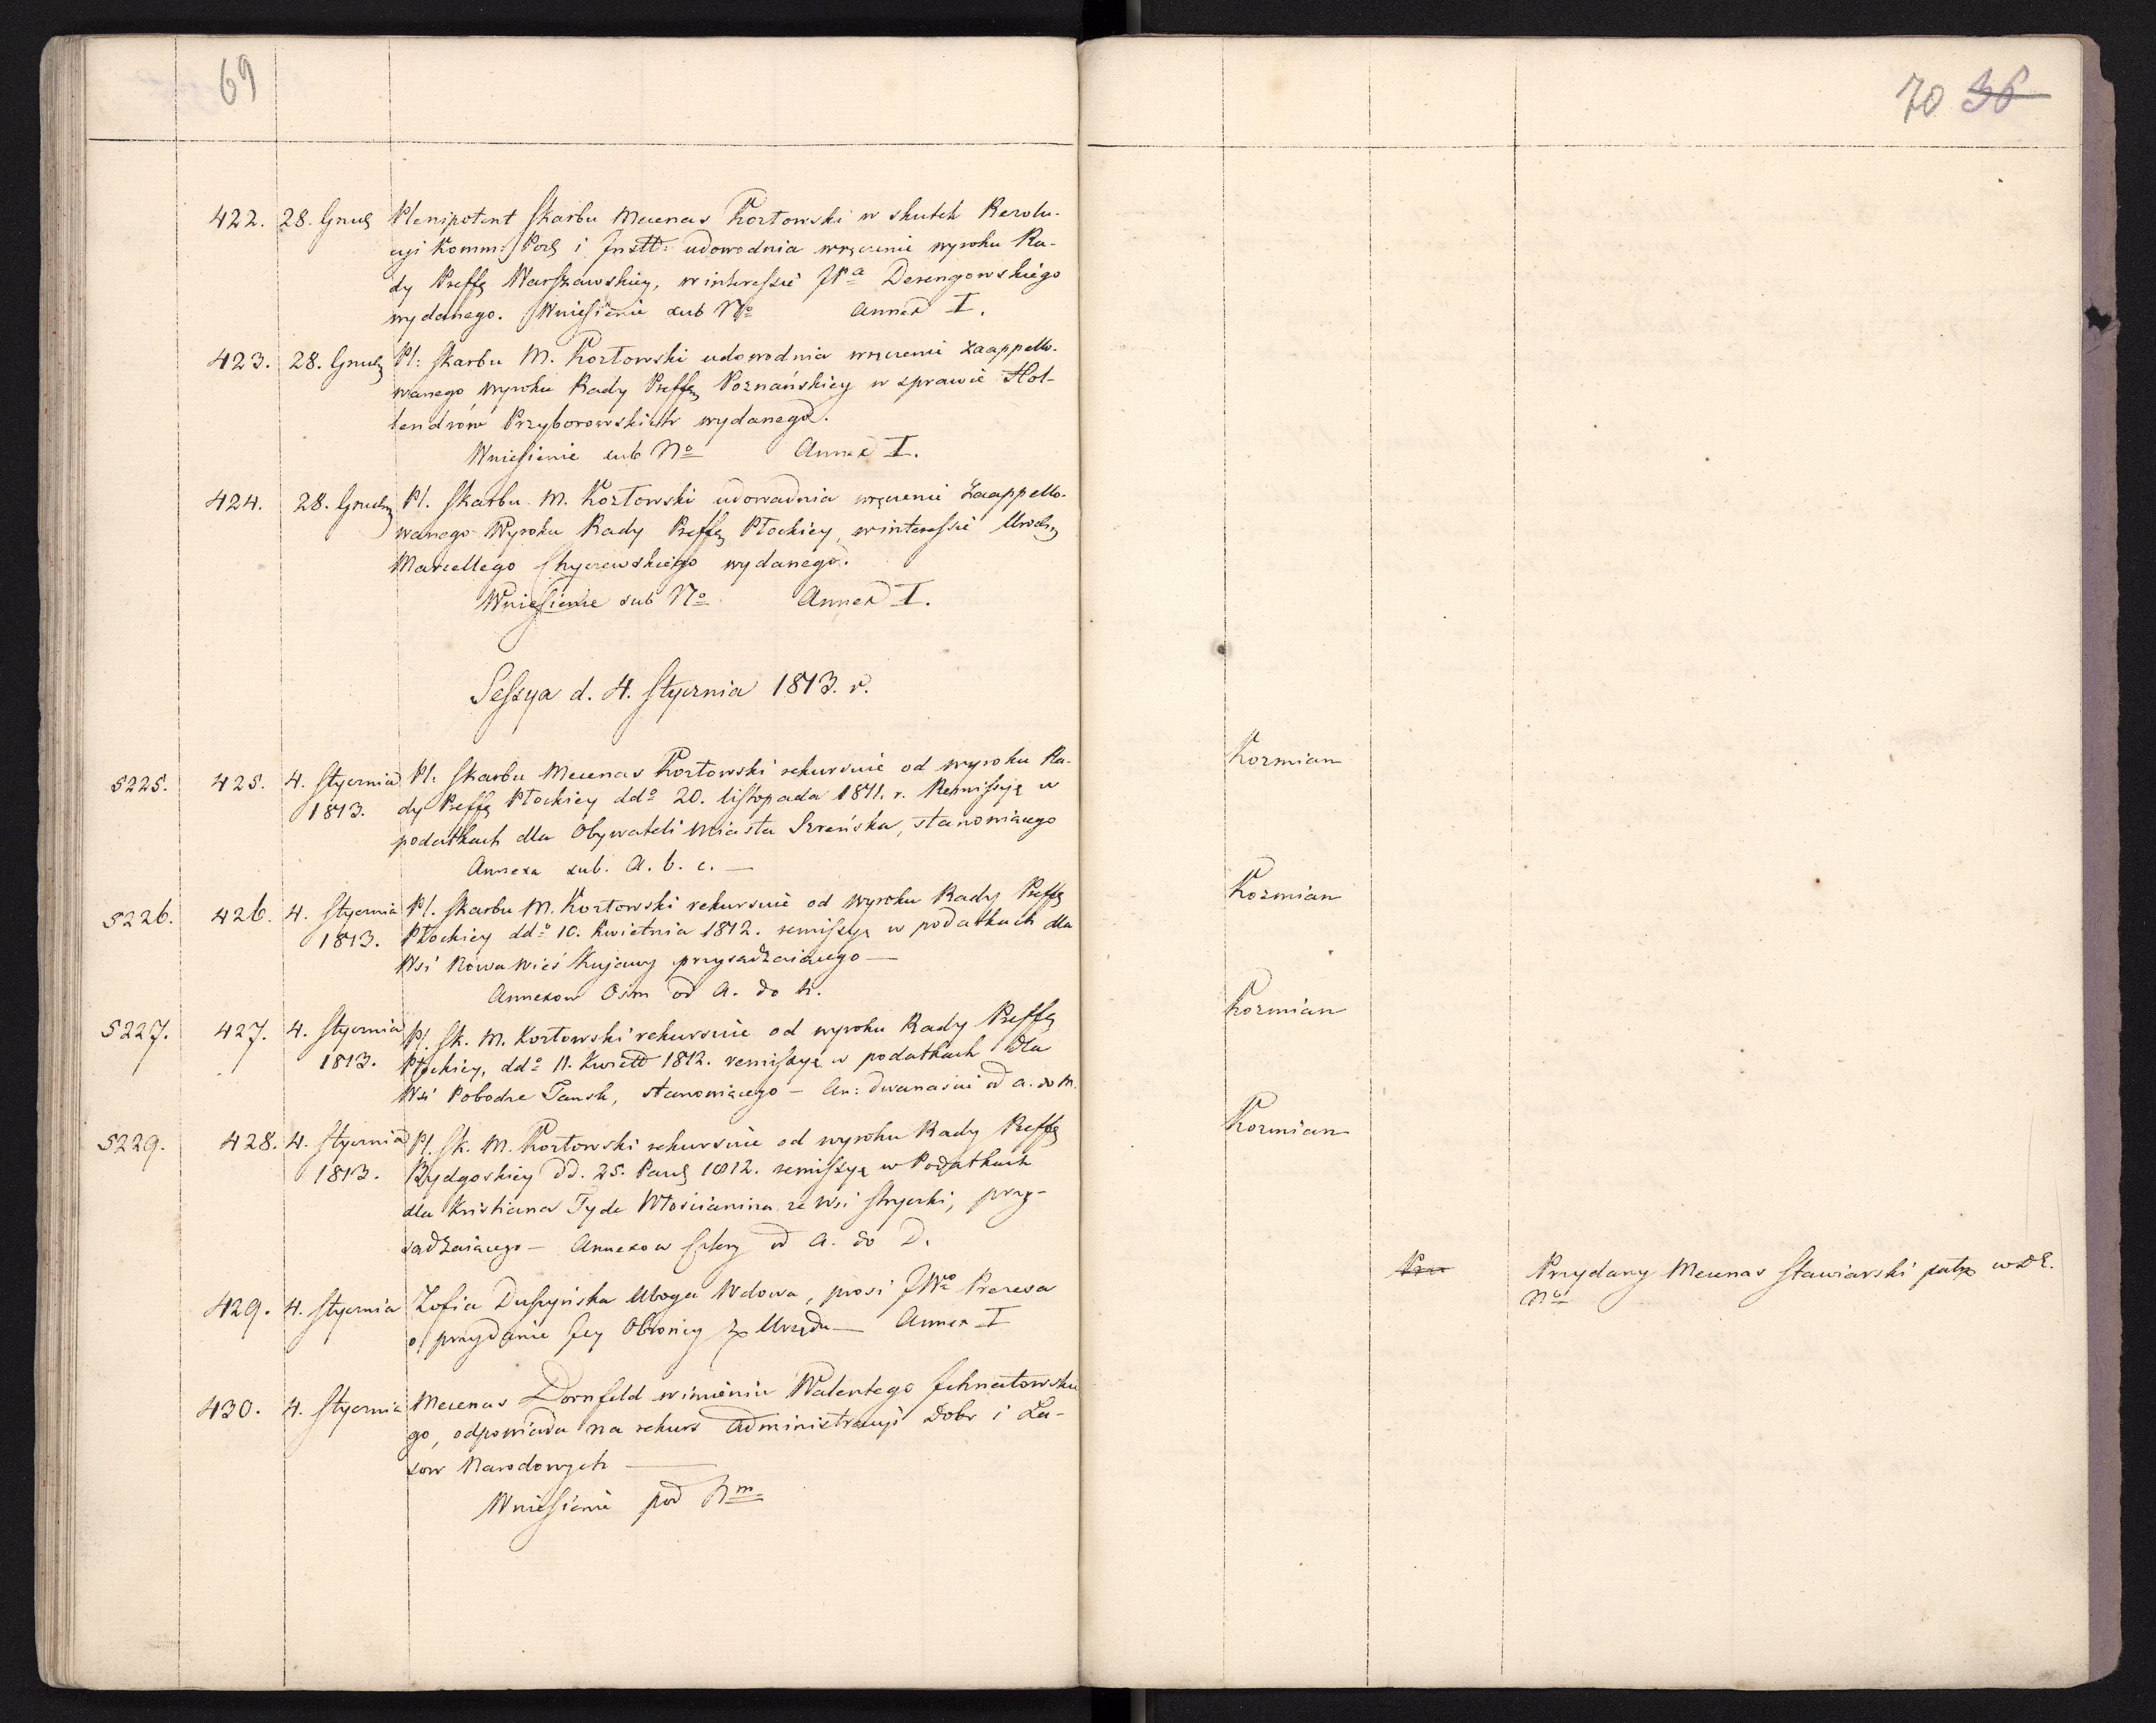 69
422. 28. Grud Plenipotent Skarbu Mecenas Kozłowski w skutek Rezolu-
cyi Komm: Pod i Instt: udowodnia wręczenie wyroku Ra-
dy Preff Warszawskiey, w interessie JPa Derengowskiego
wydanego. Wniesienie sub No Annex I.
423. 28. Grud Pl: Skarbu M. Kozłowski udowodnia wręczenie zaappello-
wanego wyroku Rady Preff Poznańskiey w sprawie Hol-
lendrów Przyborowskich wydanego.
Wniesienie sub No Annex I.
424. 28. Grud Pl. Skarbu M. Kozłowski udowadnia wręczenie Zaappello-
wanego Wyroku Rady Preff Płockiey, w interessie Urodz
Marcellego Chyczewskiego wydanego.
Wniesienie sub No Annex I.
Sessya d. 4. Stycznia 1813. r.
5225. 425. 4. Stycznia Pl: Skarbu Mecenas Kozłowski rekursuie od wyroku Ra-
1813. dy Preff Płockiey ddo 20. listopada 1811. r. Remissyę w
podatkach dla Obywateli Miasta Szreńska, stanowiącego
Annexa sub. A. b. c. —
5226. 426. 4. Stycznia Pl. Skarbu M. Kozłowski rekursuie od wyroku Rady Preff
1813. Płockiey ddo 10. Kwietnia 1812. remissyę w podatkach dla
Wsi Nowawieś Kujawy przysadzaiącego —
Annexow Osm od A. do h.
5227. 427. 4. Stycznia Pl. Sk. M. Kozłowski rekursuie od wyroku Rady Preff
1813. Płockiey, ddo 11. Kwiett 1812. remissyę w podatkach dla
Wsi Pobodze Tansk, stanowiącego — An: dwanaście od a. do M.
5229. 428. 4. Stycznia Pl. Sk. M. Kozłowski rekursuie od wyroku Rady Preff
1813. Bydgoskiey dd. 25. Paud 1812. remissyę w Podatkach
dla Kristiana Tyde Włościanina ze Wsi Stryczki, przy-
sadzaiącego — Annexow Cztery od A. do D.
429. 4. Stycznia Zofia Duszyńska Uboga Wdowa, prosi JWo Prezesa
o przydanie Jey Obrońcy z Urzędu — Annex I
430. 4. Stycznia Mecenas Dornfeld w imieniu Walentego Jchnatowskie
go, odpowiada na rekurs Administracyi Dobr i La-
sow Narodowych —
Wniesienie pod Nm
70 36
Kozmian
Kozmian
Kozmian
Kozmian
Przydany Mecenas Stawiarski
No